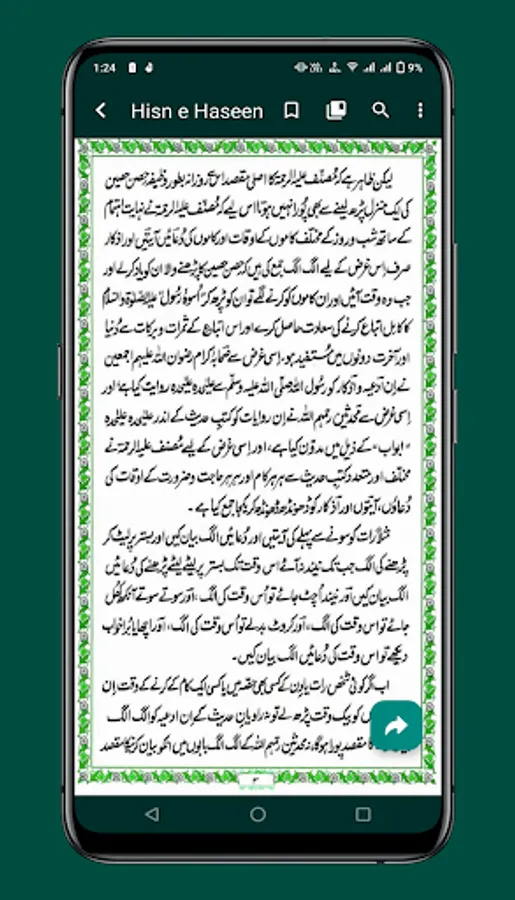 1:24
9%
Hisn e Haseen
لیکن ظاہر ہے کہ مُصنّف علیہ الرحمۃ کا اصلی مقصد اس روزانہ بطور وظیفہ حِصن حصین
کی ایک منزل پڑھ لینے سے بھی پُورا نہیں ہوتا اس لیے کہ مُصنّف علیہ الرحمۃ نے نہایت اہتمام
کے ساتھ شب و روز کے مختلف کاموں کے اوقات اور کاموں کی دُعائیں آیتیں اور اذکار
صرف اِس غرض کے لیے الگ الگ جمع کی ہیں کہ حصن حصین کا پڑھنے والا ان کو یاد کرلے اور
جب وہ وقت آئیں اور ان کاموں کو کرنے لگے تو ان کو پڑھ کر اُسوۂ رسُول علیہ الصلوٰۃ والسلام
کا کامل اتباع کرنے کی سعادت حاصل کرے اور اس اتباع کے ثمرات و برکات سے دُنیا
اور آخرت دونوں میں مُستفید ہو۔ اِسی غرض سے صحابۂ کرام رضوان اللہ علیہم اجمعین
نے اِن ادعیہ و اذکار کو رسُول اللہ صلی اللہ علیہ وسلم سے علیٰحدہ علیٰحدہ روایت کیا ہے اور
اِسی غرض سے محدثین رحمہم اللہ نے اِن روایات کو کتبِ حدیث کے اندر علیٰحدہ علیٰحدہ
"ابواب" کے ذیل میں مدوّن کیا ہے، اور اسی غرض کے لیے مُصنف علیہ الرحمۃ نے
مختلف اور متعدد کتبِ حدیث سے ہر ہر کام اور ہر ہر حاجت و ضرورت کے اوقات کی
دُعاؤں، آیتوں اور اذکار کو ڈھونڈھ ڈھونڈھ کر یکجا جمع کیا ہے۔
مثلاً رات کو سونے سے پہلے کی آیتیں اور دُعائیں الگ بیان کیں اور بستر پر لیٹ کر
پڑھنے کی الگ جب تک نیند نہ آئے اس وقت تک بستر پر لیٹے لیٹے پڑھنے کی دُعائیں
الگ بیان کیں اور نیند اُچٹ جائے تو اُس وقت کی الگ، اور سوتے سوتے آنکھ کھُل
جائے تو اس وقت کی الگ، اور کروٹ بدلے تو اُس وقت کی الگ، اور اچھا یا بُرا خواب
دیکھے تو اس وقت کی دُعائیں الگ بیان کیں۔
اب اگر کوئی شخص رات یا دن کے کسی بھی حصہ میں یا کسی ایک کام کے کرنے کے وقت اِن
کو بیک وقت پڑھ لے تو نہ راویانِ حدیث کے اِن ادعیہ کو الگ الگ
کا مقصد پورا ہوگا، نہ محدثین رحمہم اللہ کے الگ الگ بابوں میں انکو بیان کرنیکا مقصد